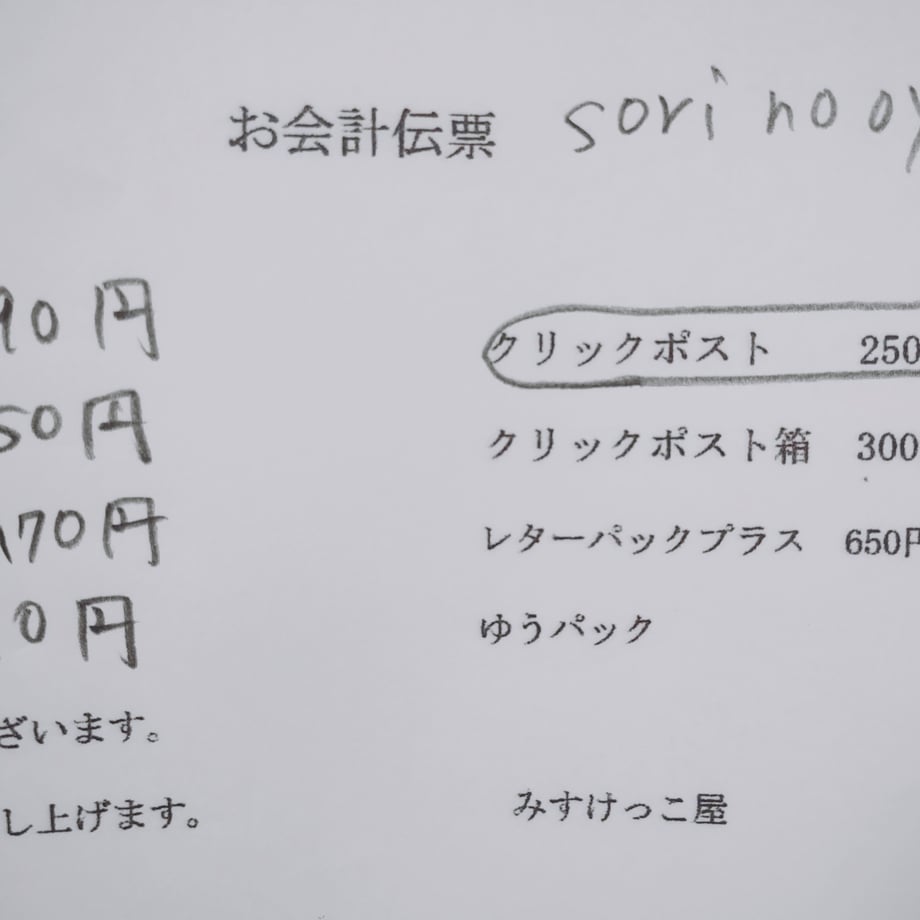 お会計伝票 sori no oy
90円
クリックポスト 250
50円
クリックポスト箱 300
170円
レターパックプラス 650円
0円
ゆうパック
ざいます。
し上げます。
みすけっこ屋